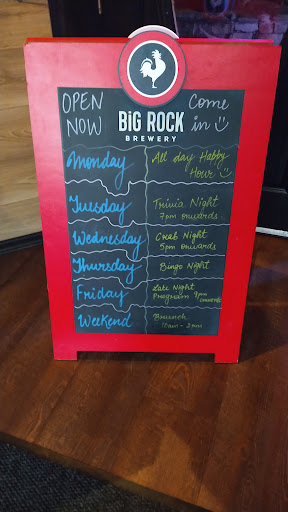 OPEN NOW
Come in
BiG ROCK
BREWERY
Monday
All day Habby
Hour
Tuesday
Trivia Night
7pm onwards
Wednesday
Crab Night
5pm onwards
Thursday
Bingo Night
Friday
Late Night
Program 9pm
onwards
Weekend
Brunch